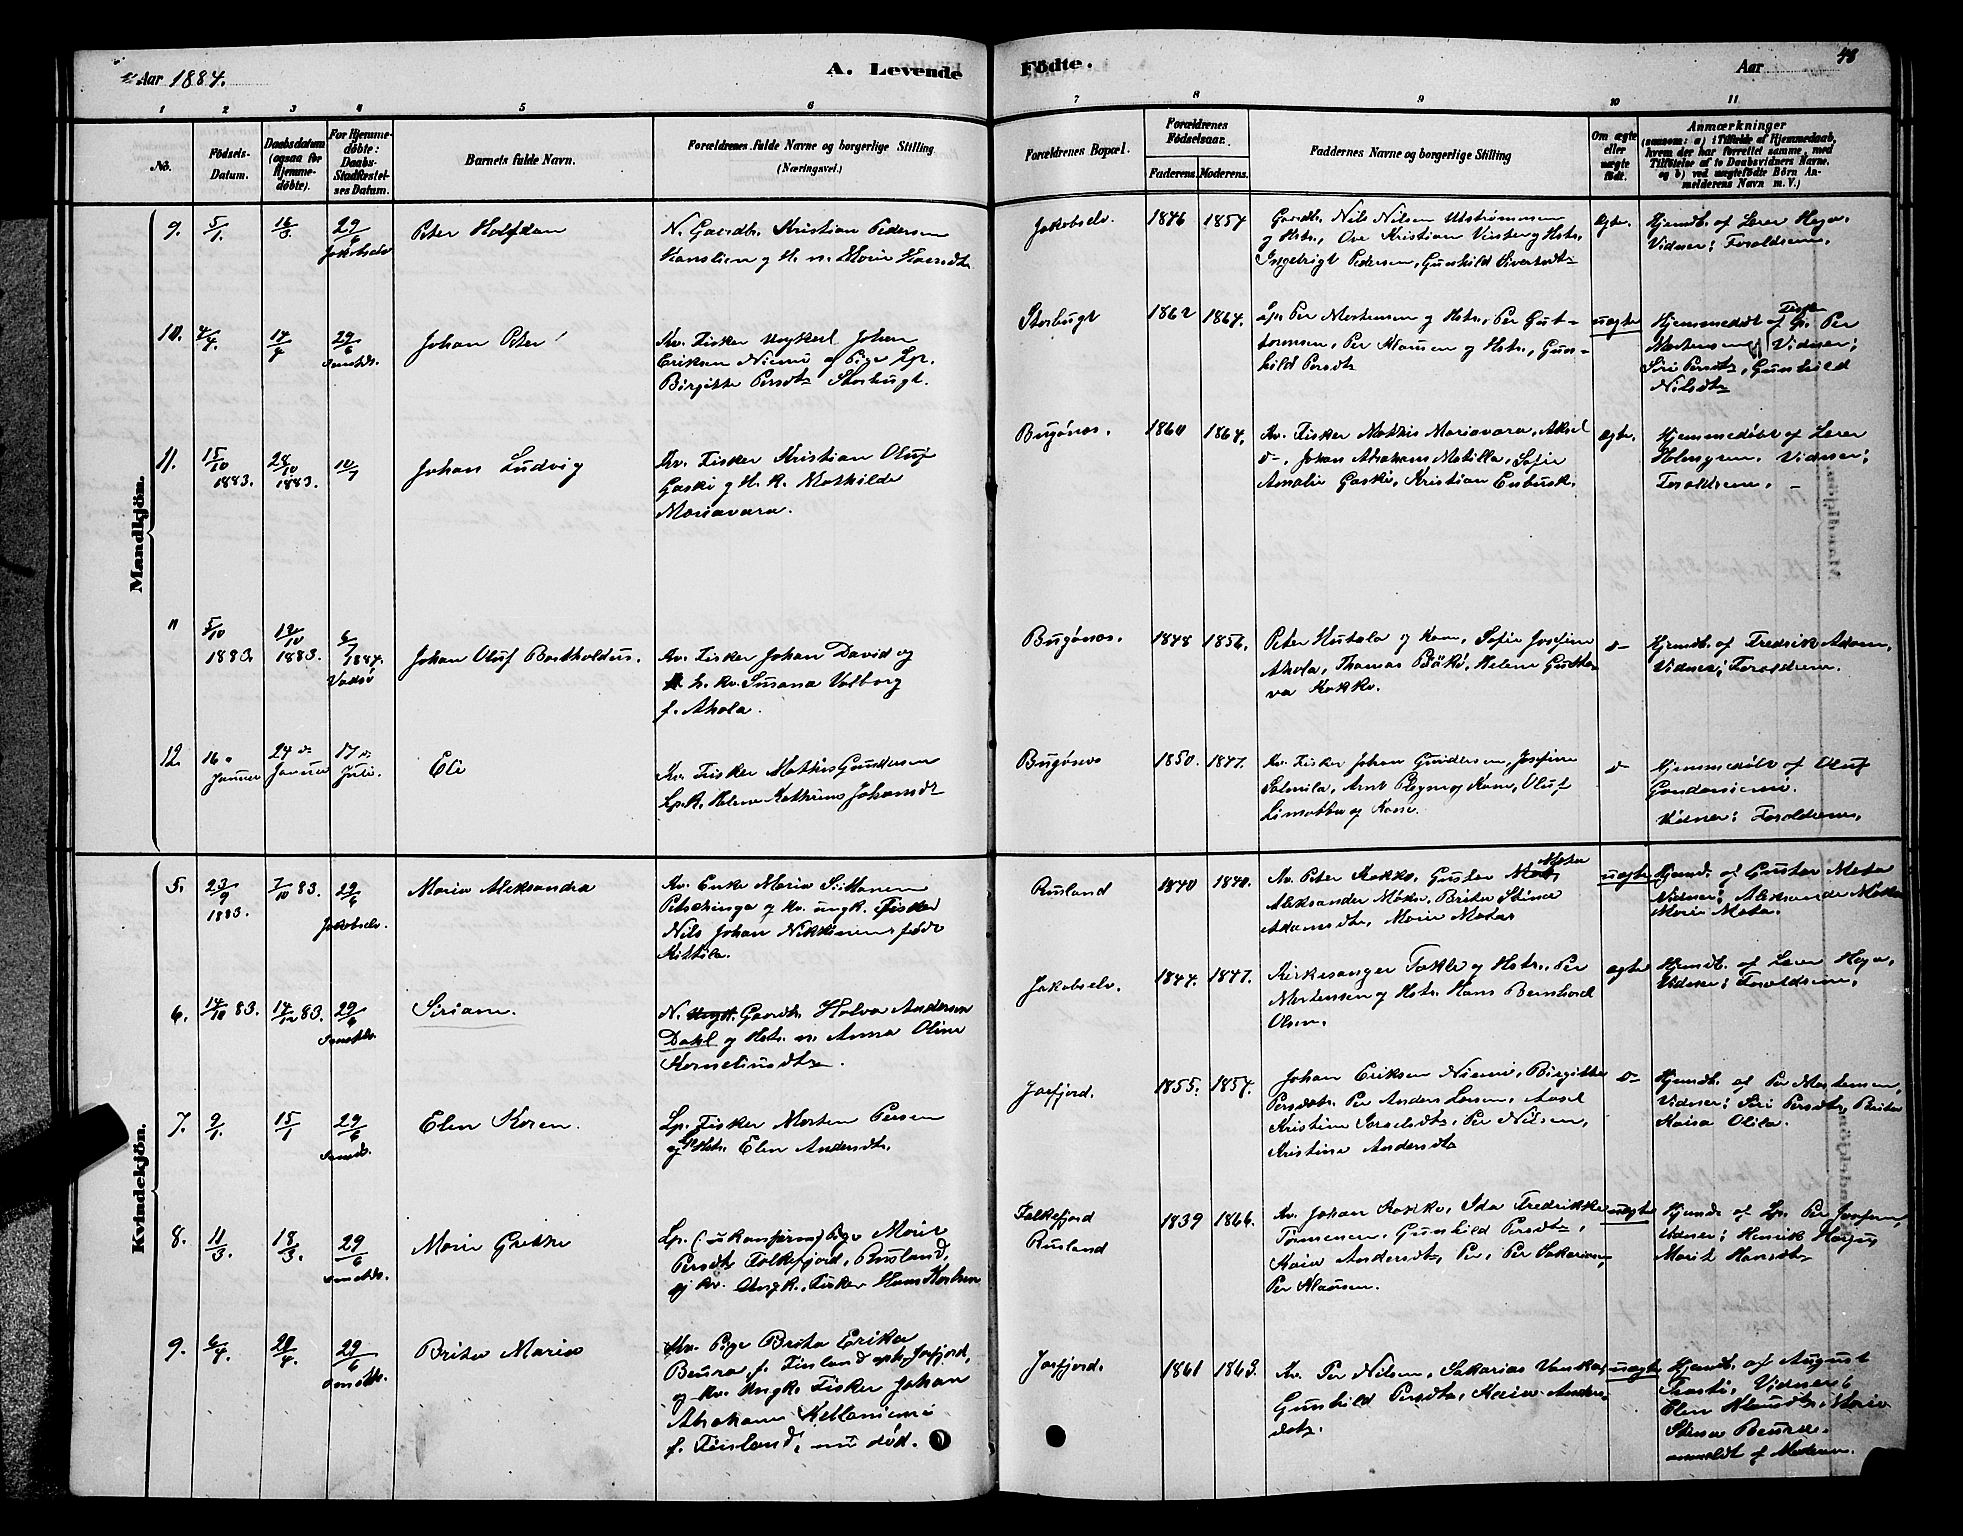 Aar 1884.
A. Levende
Födte.
Aar
48
1 2 3 4 5 6 7 8 9 10 11
No.
Födsels-
Datum.
Daabsdatum
(ogsaa for
Hjemme-
döbte).
For Hjemme-
döbte:
Daabs-
Stadfæstel-
ses Datum.
Barnets fulde Navn.
Forældrenes fulde Navne og borgerlige Stilling
(Næringsvei.)
Forældrenes Bopæl.
Forældrenes
Födselsaar.
Faderens. Moderens.
Faddernes Navne og borgerlige Stilling
Om ægte
eller
uægte
födt.
Anmærkninger
(saasom: a) i Tilfælde af Hjemmedaab,
hvem der har forrettet samme, med
Tilföielse af to Daabsvidners Navne,
og b) ved uægtefödte Börn An-
melderens Navn m. V.)
Mandkjön.
9. 5/1 16/3 29/6
Jakobselv
Peter Halfdan
N. Gaardb. Kristian Pedersen
og H. n. Maria
Jakobselv.
1846 1854
Gaardb. Nils Nilsen Utstrømmen
og Hstr., Ove Kristian Vinter og Hstr.
Ingebrigt Pedersen, Gunhild Sivertsdtr
Ægte.
Hjemdb. af Lærer Heyer.
Vidner: Forældrene.
10. 4/4 14/4 29/6
Samstds.
Johan Peter
Kv. Fisker Ungkarl Johan
Eriksen Niemi og Pige Lp.
Birgitte Persdtr Storbugt.
Storbugt
1862 1864.
Lp. Per Mortensen og Hstr., Per Gut-
tormsen, Per Klausen og Hstr., Gun-
hild Persdtr
uægte
Hjemmedøbt af Lp. Per
Mortensen, Vidner:
Siri Persdtr, Gunhild
Nilsdtr
11. 15/10 1883. 28/10 1883. 10/7
Johan Ludvig
Kv. Fisker Kristian Oluf
Gaski og H. k. Mathilde
Mariavara.
Bugönes.
1860 1864.
Kv. Fisker Mathis Mariavara, Aksel
do, Johan Abrahams Matilla, Sofie
Amalie Gaski, Kristian Enbusk.
ægte.
Hjemmedøbt af Lærer
Holmgren. Vidner:
Forældrene.
" 5/10 1883. 12/10 1883. 6/7 1884.
Vadsø
Johan Oluf Bartholdus.
Kv. Fisker Johan David og
h. kv. Susana Valborg
f. Ahola.
Bugönes.
1848 1856.
Peter Hustala og Kone, Sofie Josefine
Ahola, Thomas Pökö, Helene Gusta-
va Kokko.
do
Hjemdb. af Fredrik Adam,
Vidner: Forældrene.
12. 16. Januar 24 de Januar 17 de Juli.
Eli
Kv. Fisker Mathis Gundersen
Lp. H. Helene Kathrine Johansdtr
Bugönes
1850. 1847.
Kv. Fisker Johan Gundersen, Josefine
Salmila, Arnt og Kone, Oluf
og Kone.
do
Hjemmedøbt af Oluf
Vidner: Forældrene.
Kvindekjön.
5. 23/9 1883. 7/10 83. 29/6
Jakobselv.
Maria Aleksandra
Kv. Enke Maria
Petschinga og kv. ungk. Fisker
Nils Johan Nikkinen født
Kittila.
Rusland
1840 1840.
Kv. Peter Kokko, Gustav Mata
Aleksander Mökö, Brita Stina
Adamsdtr, Maria Mata
uægte
Hjemd. af Gustav Mata
Vidner: Aleksander
Maria Mata.
6. 14/10 83. 14/12 83. 29/6
Samstds.
Siriane.
N. Gaardb. Halvor Andersen
Dahl og Hstr. n. Anna Oline
Korneliusdtr.
Jakobselv.
1844. 1847.
Kirkesanger Takle og Hstr., Per
Mortensen og Hstr. Hans Bernhard
Olsen.
ægte
Hjemdb. af Lærer Heyer,
Vidner: Forældrene.
7. 2/1. 15/1 29/6
Samstds.
Elen Karen.
Lp. Fisker Morten Persen
og Hstr. Elen Andersdtr.
Jarfjord.
1855. 1854.
Johan Eriksen Niemi, Birgitte
Persdtr. Per Anders Larsen,
Kristine, Per Nilsen,
Kristine Andersdtr
do
Hjemdb. af Per Mortensen,
Vidner: Siri Persdtr, Brita
Kaisa Olila.
8. 11/3. 18/3 29/6
samstds.
Maria Grethe
Lp. (ukonfirm) Pige Marit
Persdtr Falkefjord, Rusland,
og kv. Ungk. Fisker Hans
Falkefjord
Rusland
1839 1866.
Kv. Johan Kokko, Ida Fredrikke
Törmenen, Gunhild Persdtr,
Kaisa Andersdtr, Per, Per Sakarias,
Per Klausen.
uægte
Hjemdb. af Lp. Per Josefsen,
Vidner: Henrik
Marit Hansdtr
9. 6/4. 20/4. 29/6
samstds.
Brita Maria
Kv. Pige Brita Erika
Beura f. Finland oph. Jarfjord,
og kv. Ungk. Fisker Johan
Abraham Kellaniemi
f. Finland, nu død.
Jarfjord.
1861 1863.
Kv. Per Nilsen, Sakarias
Gunhild Persdtr, Kaisa Anders-
datr.
uægte
Hjemdb. af August
Vidner:
Elen Klausdtr, Maria
Stina Beura.
anmeldt af Moderen.